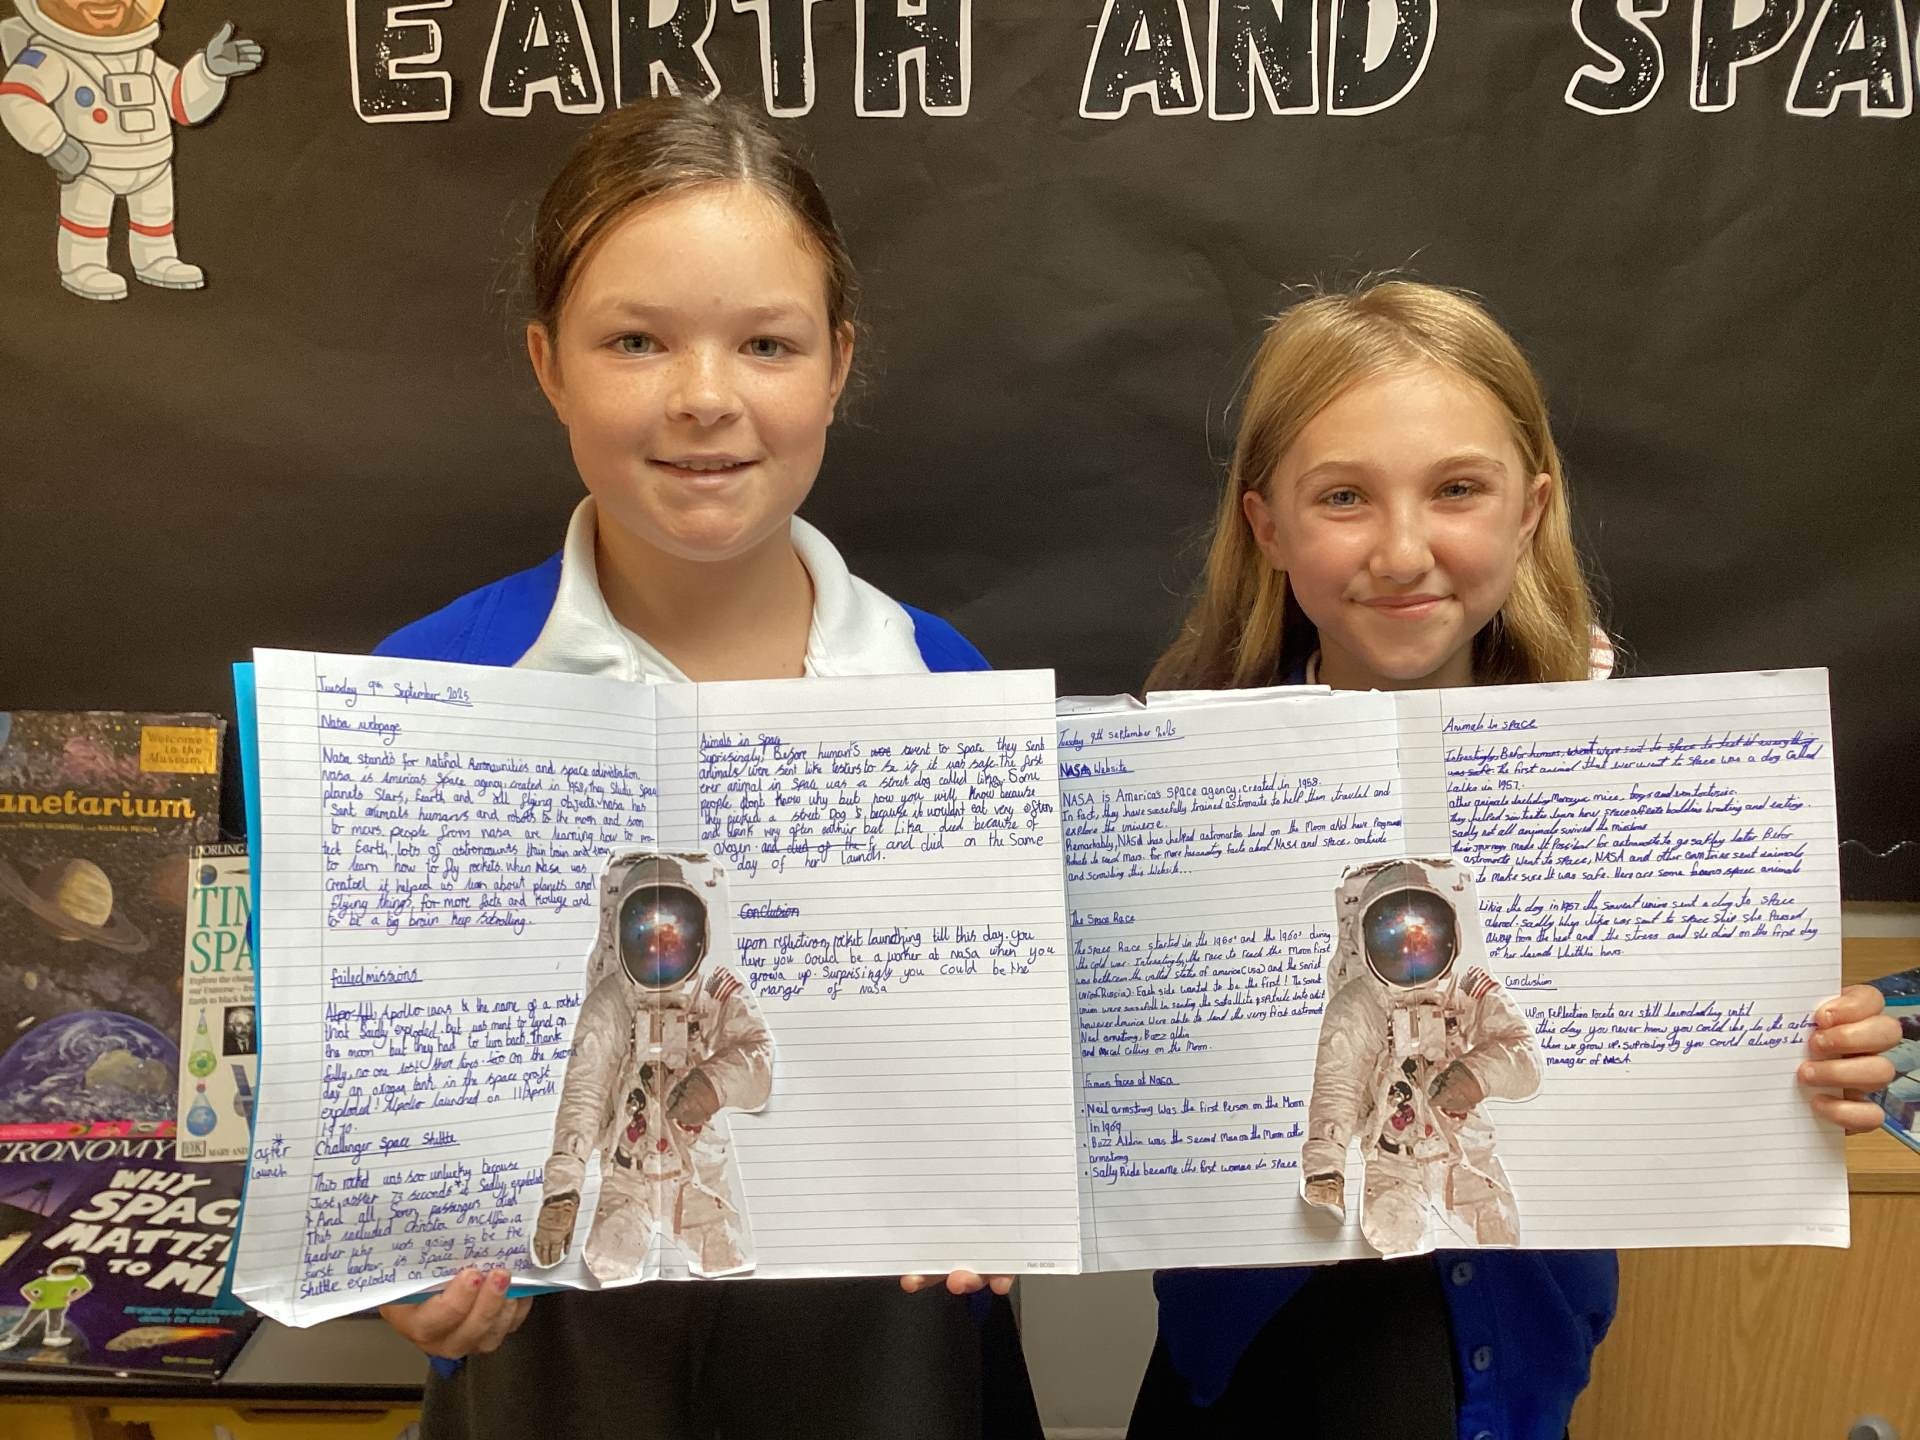 EARTH AND SPA
Welcome
to the
Museum
anetarium
DORLING
TIM
SPA
MARY AND
RONOMY
WHY
SPAC
MATTE
TO M
Tuesday 9th September 2025
Nasa webpage
Nasa stands for natinal Aeronaunities and space
nasa is Americas Space agency, created in 1958, they study Space
planets Stars, Earth and all flying objects. nasa has
Sent animals humans and robots to the moon and soon
to mars. people from nasa are learning how to pro-
tect Earth, lots of astronounts train and
to learn how to fly rockets. when Nasa was
Created it helped us learn about planets and
flying things, for more facts and
to be a big brain keep scrolling.
failed missions
Apollo was the name of a rocket
that Sadly exploded but was ment to land on
the moon but they had to turn back. Thank
fully, no one lost their lives. on the second
day an oxogen tank in the space craft
exploded! Apollo launched on 11/April
1970.
* after
launch
Challanger Space Shuttle
This rocket was soo unlucky because
Just after 73 seconds* it Sadly exploded
And all Seven passengers died
This included Christa
teacher who was going to be the
first teacher in Space this space
Shuttle exploded on
Aimals in Space
Suprisingly, Before human's went to Space they sent
animals were sent like testers to see if it was safe. the first
ever animal in Space was a street dog called Lika. Some
people dont know why but now you will know because
they picked a street Dog because it wouldn't eat very often
and drink very often eathir but Lika died because of
oxogen and died on the Same
day of her launch.
Conclusion
Upon reflection, rocket launching till this day. you
never you could be a worker at nasa when you
grown up. Surprisingly you could be the
manger of nasa
Tuesday 9th september 2025
NASA Website
NASA is America's space agency, created in 1958.
In fact, they have sucesfully trained astronauts to help them travel and
explore the universe.
Remarkably, NASA has helped astronauts land on the Moon and have
Robots to mars. for more facts about NASA and space, contiue
and scrowling this website...
The Space Race
The Space Race started in the 1950s and the 1960s during
the cold war. Interestingly, the race to reach the Moon first
was between the united states of america (usa) and the Soviet
union (Russia). Each side wanted to be the first! The Soviet
union were sucessfull in sending the satallite sputnik into orbit
however America were able to land the very first astronaut
Neil armstrong, Buzz aldrin
and Mical Collins on the Moon.
Famous faces at Nasa
• Neil armstrong was the first Person on the Moon
In 1969
• Buzz Aldrin was the second Man on the Moon after
armstrong
• Sally Ride became the first woman in space
Animals in space
Interestingly, Before humans, went were sent to space to test if everything
was safe. the first animal that ever went to space was a dog called
Laika in 1957.
other animals including mice, frogs and even tortoise.
they helped scientists learn how space affects bodies breathing and eating.
sadly not all animals survived the missions
their journeys made it possible for astronauts to go safely later. Before
astronauts went to space, NASA and other countries sent animals
to make sure it was safe. Here are some famous space animals
Likia the dog in 1957 the soviet union sent a dog to space
Sadly when Lika was sent to space ship she Passed
away from the heat and the stress and she died on the first day
of her launch
Conclusion
Upon reflection rockets are still launching until
this day. you never know you could be in the
when we grow up. Suprisingly you could always be
manager of NASA